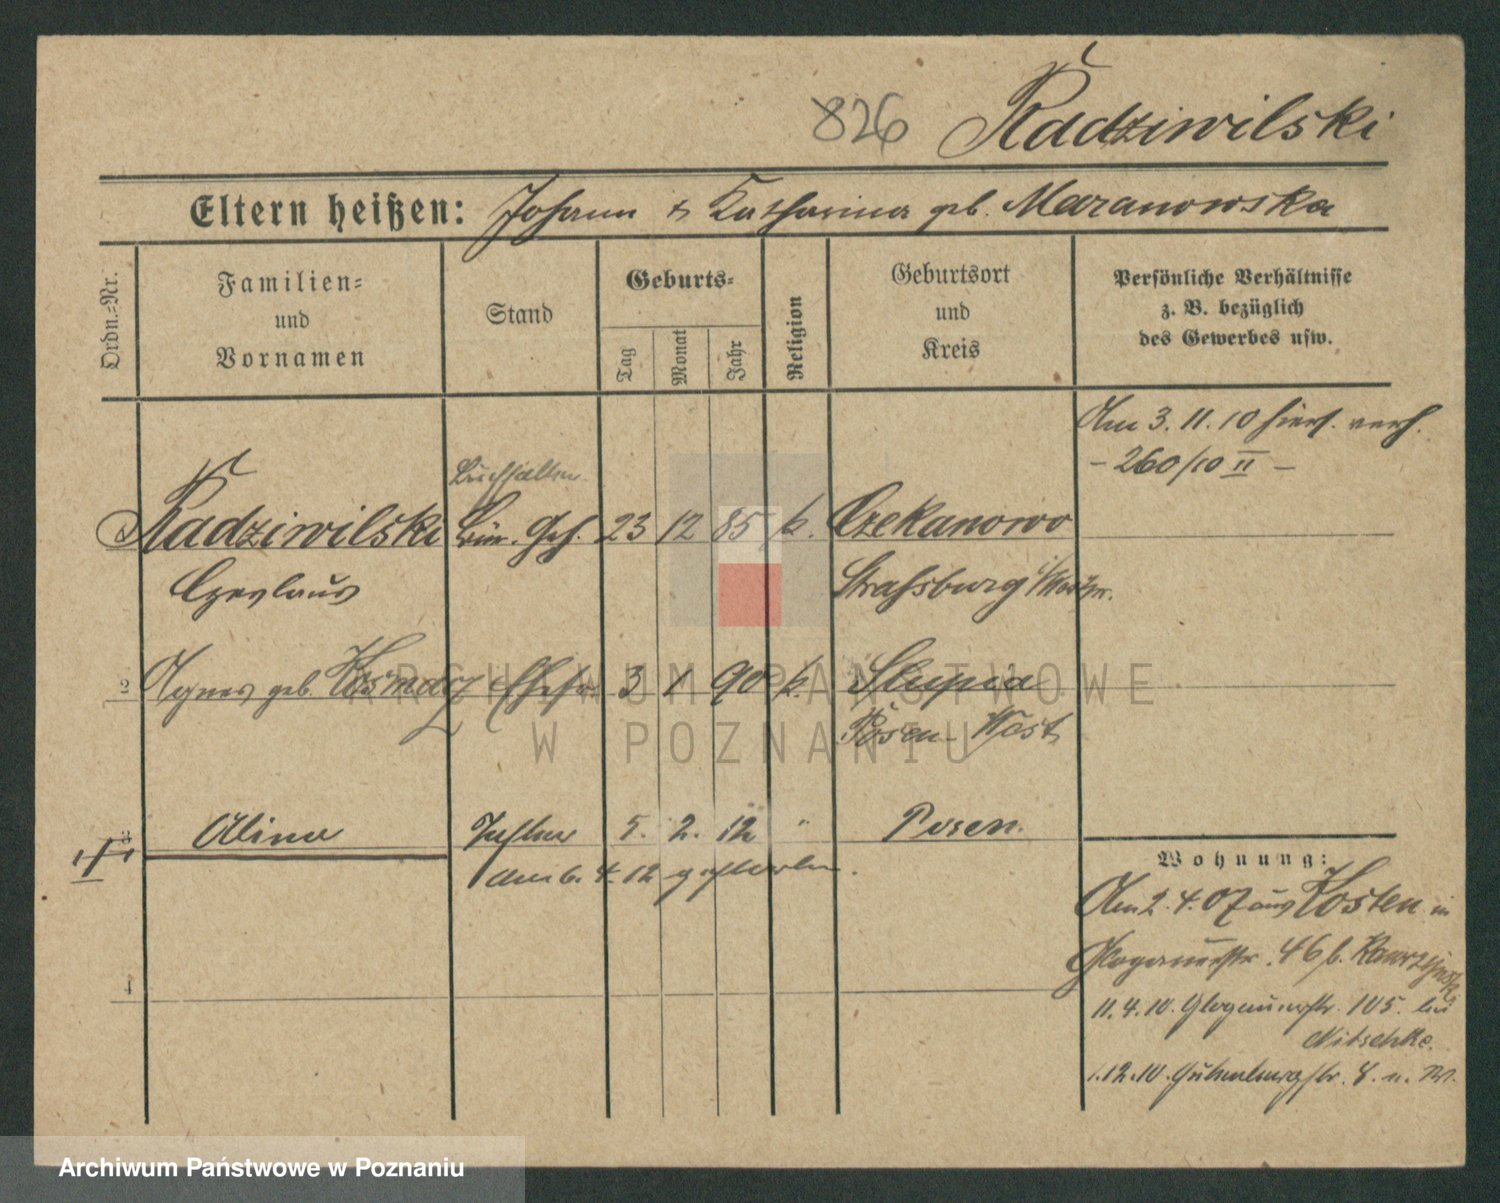 826 Radziwilski
Eltern heißen: Johann & Katharina geb. Mazanowska
Ordn.=Nr.
Familien=
und
Vornamen
Stand
Geburts=
Tag
Monat
Jahr
Religion
Geburtsort
und
Kreis
Persönliche Verhältnisse
z. B. bezüglich
des Gewerbes usw.
Am 3. 11. 10 hier verh.
- 260/10 II -
Buchhalter
Radziwilski Bür. Geh. 23 12 85 k. Czekanowo
Czeslaus Strassburg i/Westpr.
2 Agnes geb. Kosmacz Ehefr. 3 1 90 k. Slupia
Posen-West
3 Alina Tochter 5. 2. 12 " Posen.
am 6. 4. 12 gestorben.
4
Wohnung:
Am 2. 4. 07 aus Kosten in
Glogauerstr. 46 b. Kawrzynski
11. 4. 10. Glogauerstr. 105. bei
Nitschke.
1.12.10. Gutenbergstr. 8.
ARCHIWUM PAŃSTWOWE
W POZNANIU
Archiwum Państwowe w Poznaniu